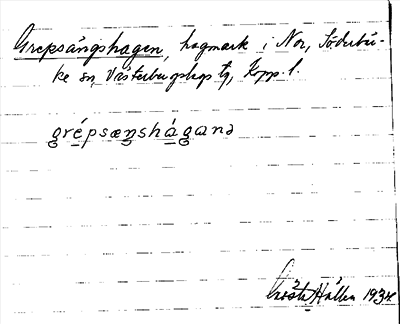 Grepsängshagen, hagmark i Nor, Söderbär-
ke sn, Västerbergslags tg, Kpp. l.
grépsæŋshágan∂
Gösta Hallén 1934